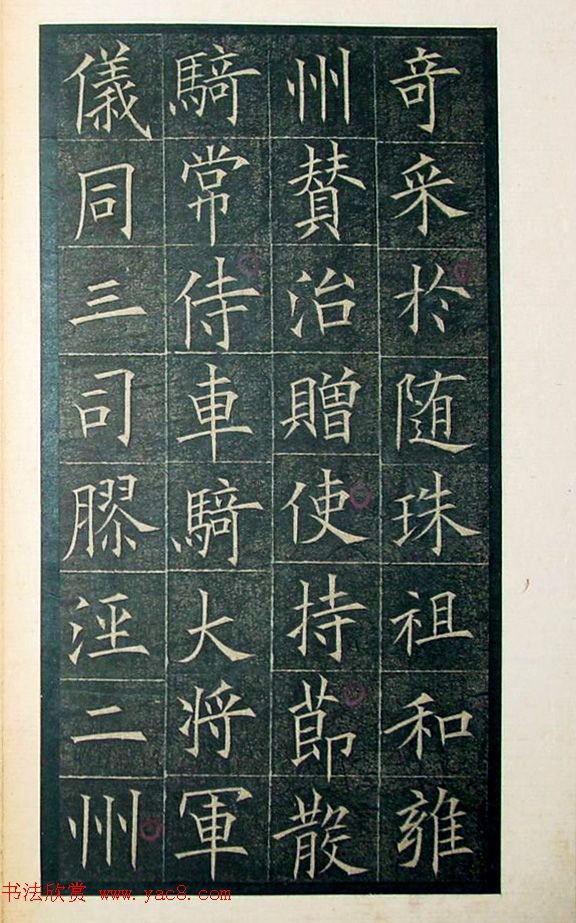 奇采於随珠祖和雍
州賛治贈使持莭散
騎常侍車騎大將軍
儀同三司膠涇二州
书法欣赏 www.yac8.com